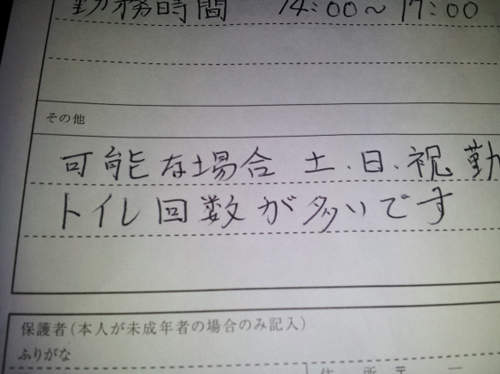 勤務時間 14:00~17:00
その他
可能な場合 土、日、祝 勤
トイレ回数が多いです
保護者(本人が未成年者の場合のみ記入)
ふりがな